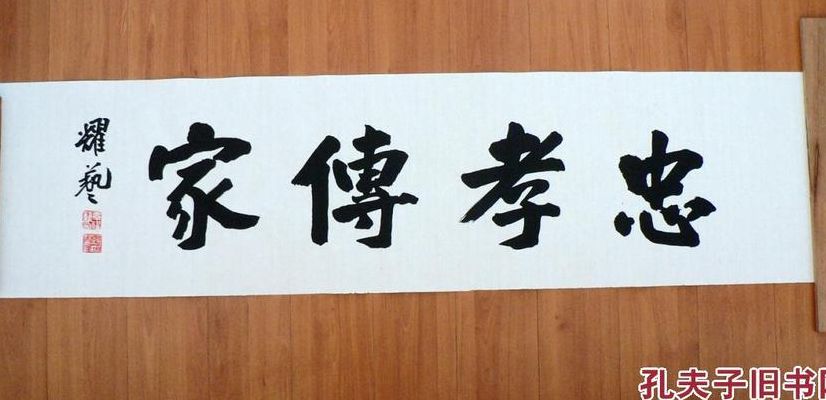 忠孝傳家
耀藝
孔夫子旧书网